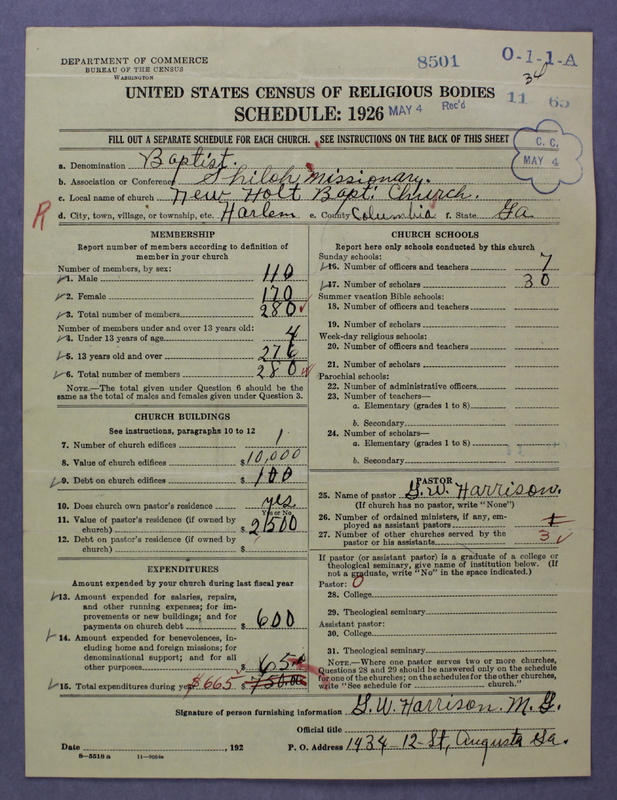 DEPARTMENT OF COMMERCE
BUREAU OF THE CENSUS
WASHINGTON
8501
O-1-1-A
34
UNITED STATES CENSUS OF RELIGIOUS BODIES
SCHEDULE: 1926
MAY 4 Rec'd
11 65
FILL OUT A SEPARATE SCHEDULE FOR EACH CHURCH. SEE INSTRUCTIONS ON THE BACK OF THIS SHEET
C. C.
MAY 4
a. Denomination Baptist.
b. Association or Conference Shiloh Missionary.
c. Local name of church New Holt Bapt. Church.
R
d. City, town, village, or township, etc. Harlem e. County Columbia f. State Ga
MEMBERSHIP
Report number of members according to definition of
member in your church
Number of members, by sex:
1. Male 110
2. Female 170
3. Total number of members 280
Number of members under and over 13 years old:
4. Under 13 years of age 4
5. 13 years old and over 276
6. Total number of members 280
NOTE.—The total given under Question 6 should be the
same as the total of males and females given under Question 3.
CHURCH BUILDINGS
See instructions, paragraphs 10 to 12
7. Number of church edifices 1
8. Value of church edifices $10,000
9. Debt on church edifices $100
10. Does church own pastor's residence yes
Yes or No
11. Value of pastor's residence (if owned by
church) $2500
12. Debt on pastor's residence (if owned by
church) $
EXPENDITURES
Amount expended by your church during last fiscal year
13. Amount expended for salaries, repairs,
and other running expenses; for im-
provements or new buildings; and for
payments on church debt $600
14. Amount expended for benevolences, in-
cluding home and foreign missions; for
denominational support; and for all
other purposes $65
15. Total expenditures during year $665 $750.00
CHURCH SCHOOLS
Report here only schools conducted by this church
Sunday schools:
16. Number of officers and teachers 7
17. Number of scholars 30
Summer vacation Bible schools:
18. Number of officers and teachers
19. Number of scholars
Week-day religious schools:
20. Number of officers and teachers
21. Number of scholars
Parochial schools:
22. Number of administrative officers
23. Number of teachers—
a. Elementary (grades 1 to 8)
b. Secondary
24. Number of scholars—
a. Elementary (grades 1 to 8)
b. Secondary
PASTOR
25. Name of pastor G. W. Harrison.
(If church has no pastor, write "None")
26. Number of ordained ministers, if any, em-
ployed as assistant pastors
27. Number of other churches served by the
pastor or his assistants 3
If pastor (or assistant pastor) is a graduate of a college or
theological seminary, give name of institution below. (If
not a graduate, write "No" in the space indicated.)
Pastor: 0
28. College
29. Theological seminary
Assistant pastor:
30. College
31. Theological seminary
NOTE.—Where one pastor serves two or more churches,
Questions 28 and 29 should be answered only on the schedule
for one of the churches; on the schedules for the other churches,
write "See schedule for church."
Signature of person furnishing information G. W. Harrison. M. G.
Official title
Date , 192 P. O. Address 1434-12-St, Augusta Ga.
8—5518 a 11—9084a